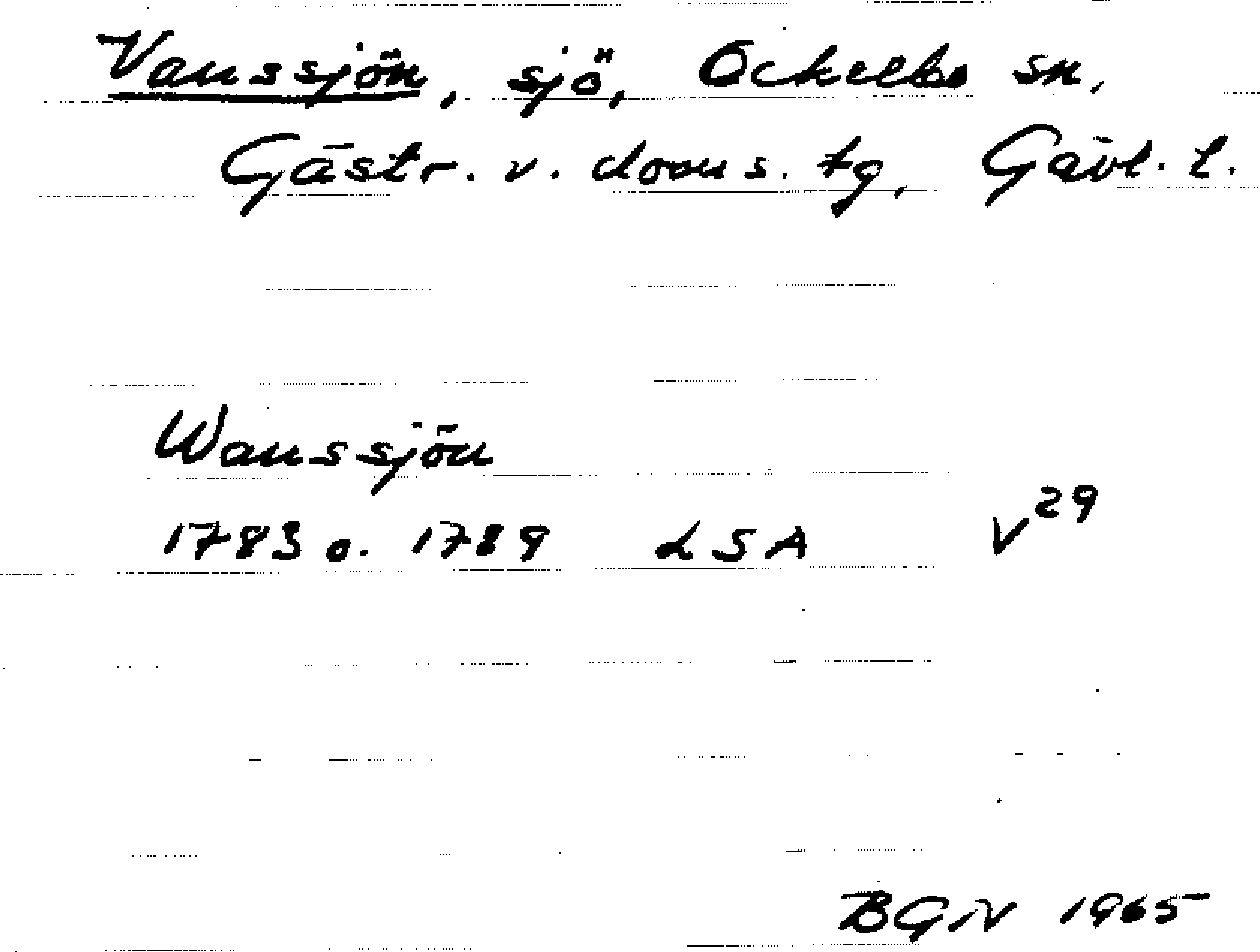 Vanssjön, sjö, Ockelbo sn,
Gästr. v. doms. tg, Gävl. l.
Wanssjön
1783 o. 1789 LSA V29
BGN 1965